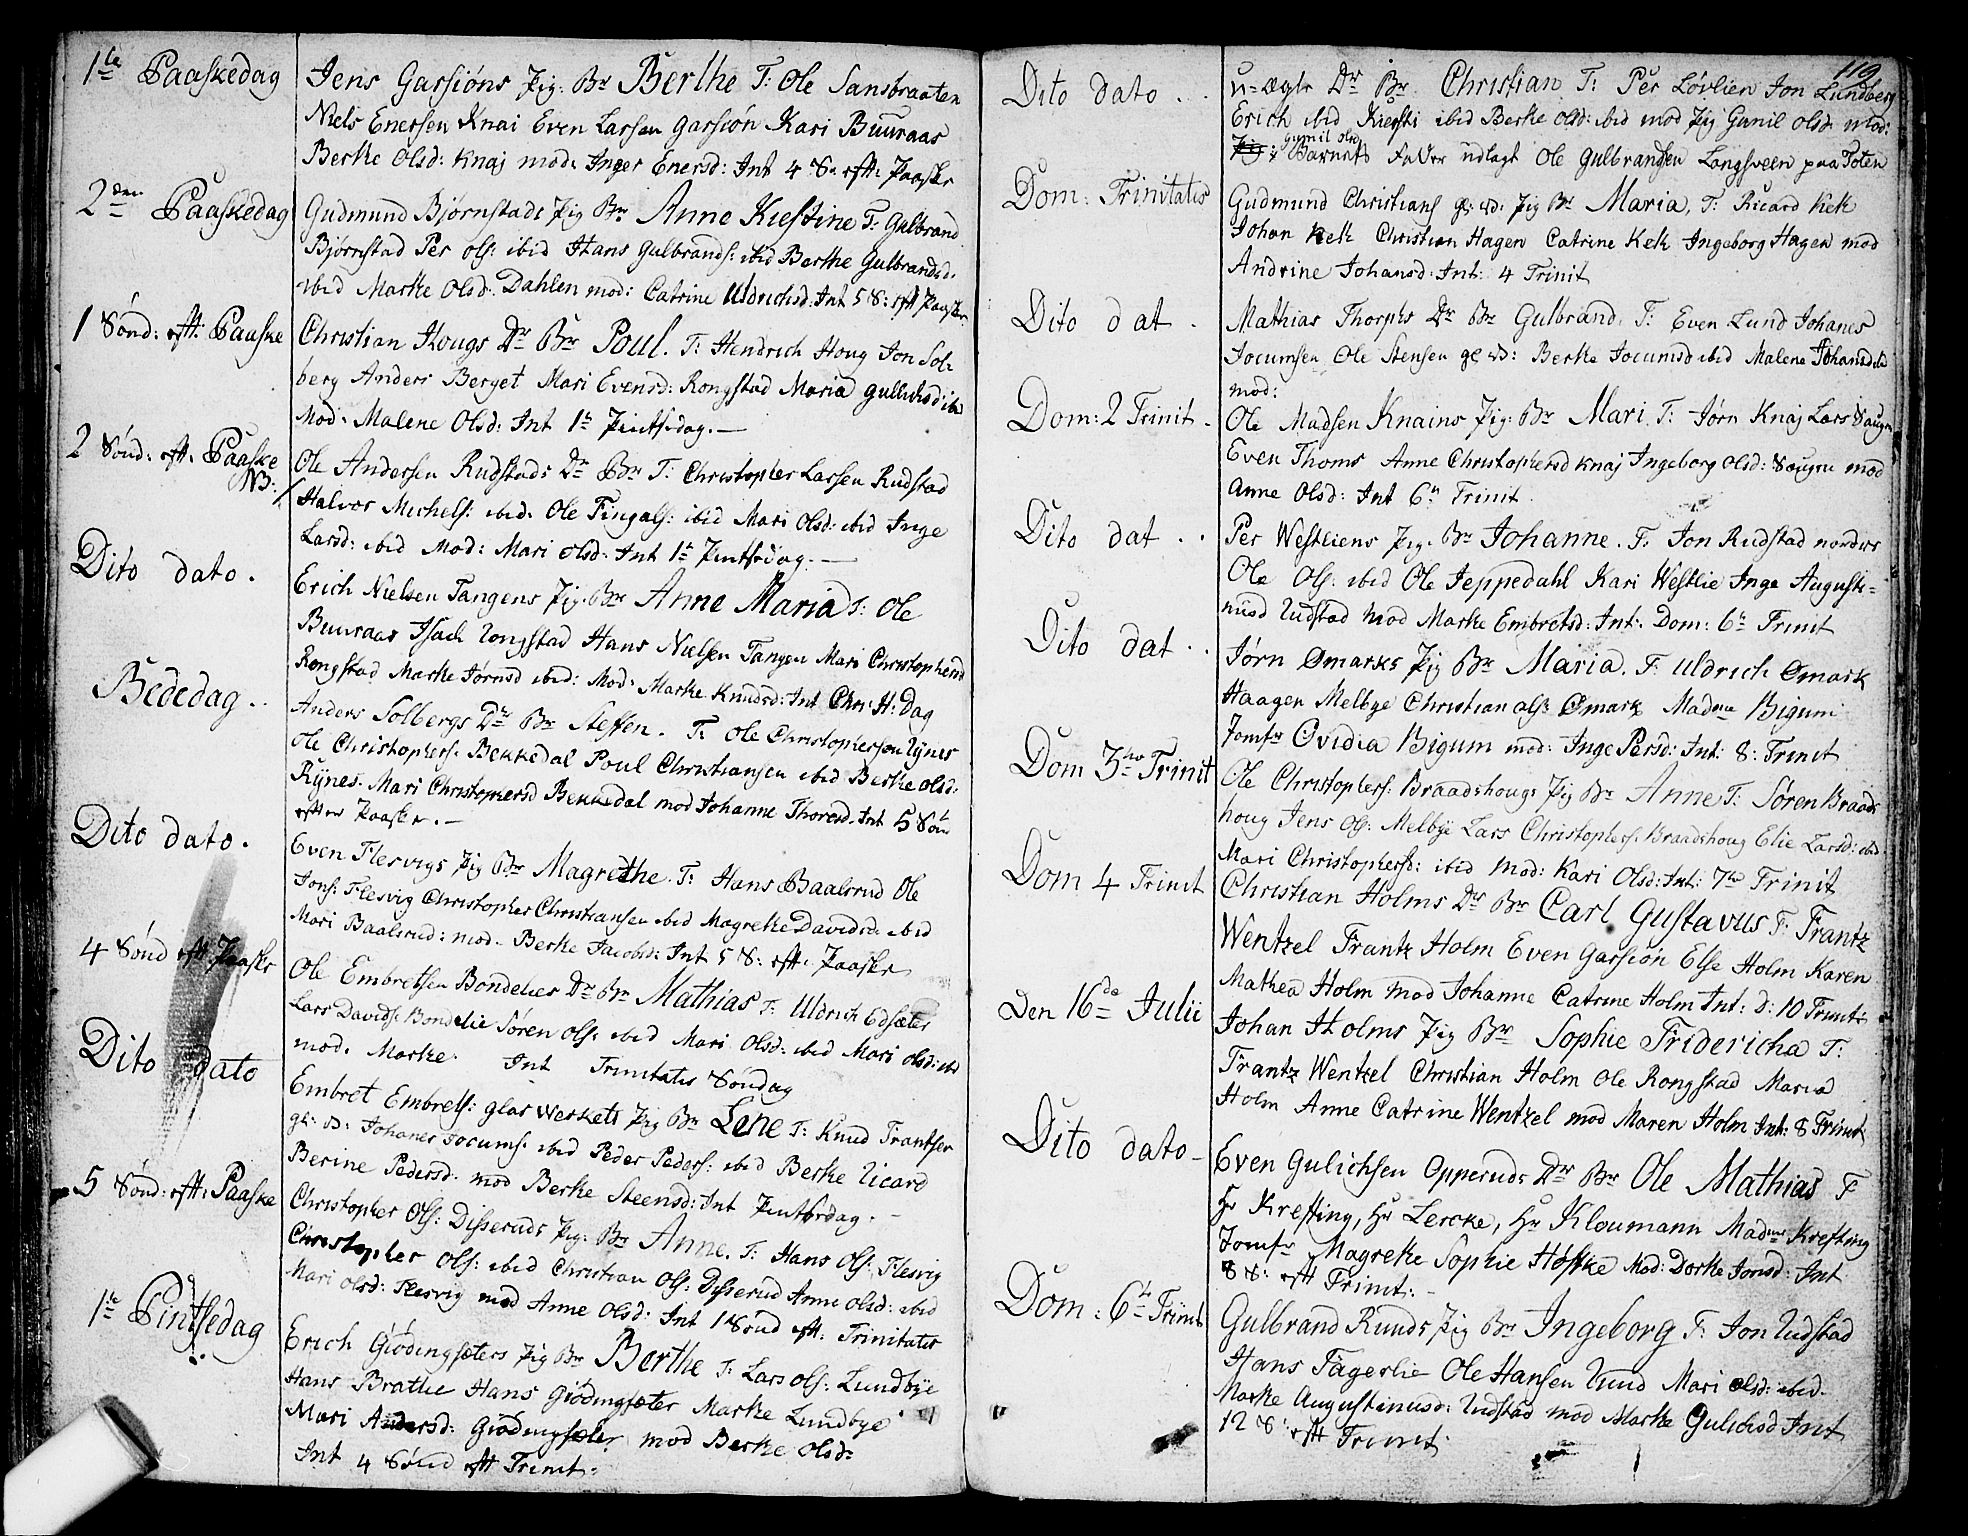 1te Paaskedag
Jens Garsiöns Pig: Br Berthe T: Ole Sansbraaten
Niels Enersen Knai Even Larsen Garsiön Kari Buuraas
Berthe Olsd: Knaj mod: Inger Enersd: Int 4 S: eftr: Paaske
2den Paaskedag
Gudmund Bjørnstads Pig Br Anne Kiestine T: Gulbrand
Bjørnstad Per ols: ibid Hans Gulbrands: ibid Berthe Gulbrandsd:
ibid Marthe Olsd: Dahlen mod: Catrine Uldrichsd: Int 5 S: eft Paaske
1 Sönd: eft: Paaske
Christian Hougs Dr Br Poul. T: Hendrich Houg Jon Sol-
berg Anders Berget Mari Evensd: Rongstad Maria Gullichsd: ibd
Mod: Malene Olsd: Int 1te Pintsedag. —
2 Sönd: eft: Paaske
NB:
Ole Andersen Rudstads Dr Br T: Christopher Larsen Rudstad
Halvor Michels: ibid: Ole Fingals: ibid Mari Olsd: ibid Inge
Larsd: ibid Mod: Mari Olsd: Int 1te Pintsedag: —
Dito dato.
Erich Nielsen Tangens Pig: Br Anne Maria T: Ole
Buuraas Isach Rongstad Hans Nielsen Tangen Mari Christophersd
Rongstad Marthe Jörnsd ibid: Mod: Marthe Knudsd: Int Chri: H: Dag
Bededag. .
Anders Solbergs Dr Br Steffen. T: Ole Christophersen Rynes
Ole Christophers: Bekkedal Poul Christiansen ibid Berthe Olsd:
Rÿnes. Mari Christophersd Bekkedal mod Johanne Thoresd. Int 5 Sön
efter Paaske. —
Dito dato.
Even Flesvigs Pig Br Magrethe. T: Hans Baalsrud Ole
Jons: Flesvig Christopher Christiansen ibid Magrethe Davidsd: ibid
Mari Baalsrud: mod. Berthe Jacobsd: Int 5 S: eft: Paaske
4 Sönd eft Paaske
Ole Embretsen Bondeliens Dr Br Mathias T: Uldrich Edsæter
Lars Davids: Bondelie Søren Ols: ibid Mari Olsd: ibid Mari Olsd: ibd
mod. Marthe. Int Trinitatis Söndag
Dito dato
Embret Embrets: glas werkets Pig Br Lene T: Knud Frantsen
gl: vd: Johanes Jocums: ibid Peder Peders: ibid Berthe Ricard
Berine Pedersd: mod Berthe Steensd: Int Pintsedag. —
5 Sönd: eft: Paaske
Christopher Ols: Disseruds Pig: Br Anne. T: Hans Ols: Flesvig
Christopher Ols: ibid Christian Ols: Disserud Anne Olsd: ibid
Mari Olsd: Flesvig mod Anne Olsd: Int 1 Sönd eft: Trinitatis
1te Pintsedag
Erich Giödingsæters Pig Br Berthe T: Lars Ols: Lundbÿe
Hans Brathe Hans Giödingsæter Marthe Lundbye
Mari Andersd: Giödingsæter mod Berthe Olsd:
Int 4 Sönd eft Trinit:
119
Dito dato . .
u=ægte Dr Br. Christian T: Per Lövlien Jon Lundberg
Erich ibid Kiersti ibid Berthe Olsd: ibid mod Pig Gunil Olsd: mod:
Gunil Olsd
Pig: Barnets Fader udlagt Ole Gulbrandsen Langsveen paa Toten
Dom: Trinitatis
Gudmund Christians gl: vd: Pig Br Maria, T: Ricard Kek
Johan Kek Christian Hagen Catrine Kek Ingeborg Hagen mod
Andrine Johansd: Int: 4 Trinit
Dito dat .
Mathias Thorphs Dr Br Gulbrand, T: Even Lund Johanes
Jocumsen Ole Stensen gl vd: Berthe Jocumsd ibid Malene Johansd ibd
mod:
Dom: 2 Trinit.
Ole Madsen Knains Pig: Br Mari T: Jörn Knaj Lars Saugen
Even Thoms Anne Christophersd Knaj Ingeborg Olsd: Saugen mod
Anne Olsd: Int 6te Trinit.
Dito dat . .
Per Westliens Pig. Br Johanne. T: Jon Rudstad nordre
Ole Ols: ibid Ole Jeppedahl Kari Westlie Inge Augusti-
nusd Rudstad mod Marthe Embretsd: Int: Dom: 6te Trinit
Dito dat . .
Jörn Ømarks Pig Br Maria. T: Uldrich Ømark
Haagen Melbye Christian Ols: Ømark Madme Bigum
Jomfr Ovidia Bigum mod: Inge Persd: Int: 8: Trinit
Dom 3tie Trinit
Ole Christophers: Braadshougs Pig Br Anne T: Sören Braads
houg Jens Ols: Melbÿe Lars Christophers: Braadshoug Elie Larsd: ibd
Mari Christophersd: ibid Mod: Kari Olsd: Int: 7de Trinit
Dom 4 Trinit
Christian Holms Dr Br Carl Gustavus T: Frantz
Wentzel Frantz Holm Even Garsiön Else Holm Karen
Mathea Holm mod Johanne Catrine Holm Int: D: 10 Trinit:
Den 16de Julii
Johan Holms Pig Br Sophie Fridericha T:
Frantz Wentzel Christian Holm Ole Rongstad Maria
Holm Anne Catrine Wentzel mod Maren Holm Int: 8 Trinit
Dito dato –
Even Gulichsen Opperuds Dr Br Ole Mathias T
Hr Krefting, Hr Lercke, Hr Kloumann Madme Krefting
Jomfr Magrethe Sophie Høffke Mod: Dorthe Jonsd: Int
8 S: eft Trinit: –
Dom: 6te Trinit
Gulbrand Ruuds Pig Br Ingeborg T: Jon Rudstad
Hans Fagerlie Ole Hansen Ruud Mari Olsd: ibid.
Marthe Augustinusd: Rudstad mod Marthe Gulichsd Int
12 S: eft Trinit.